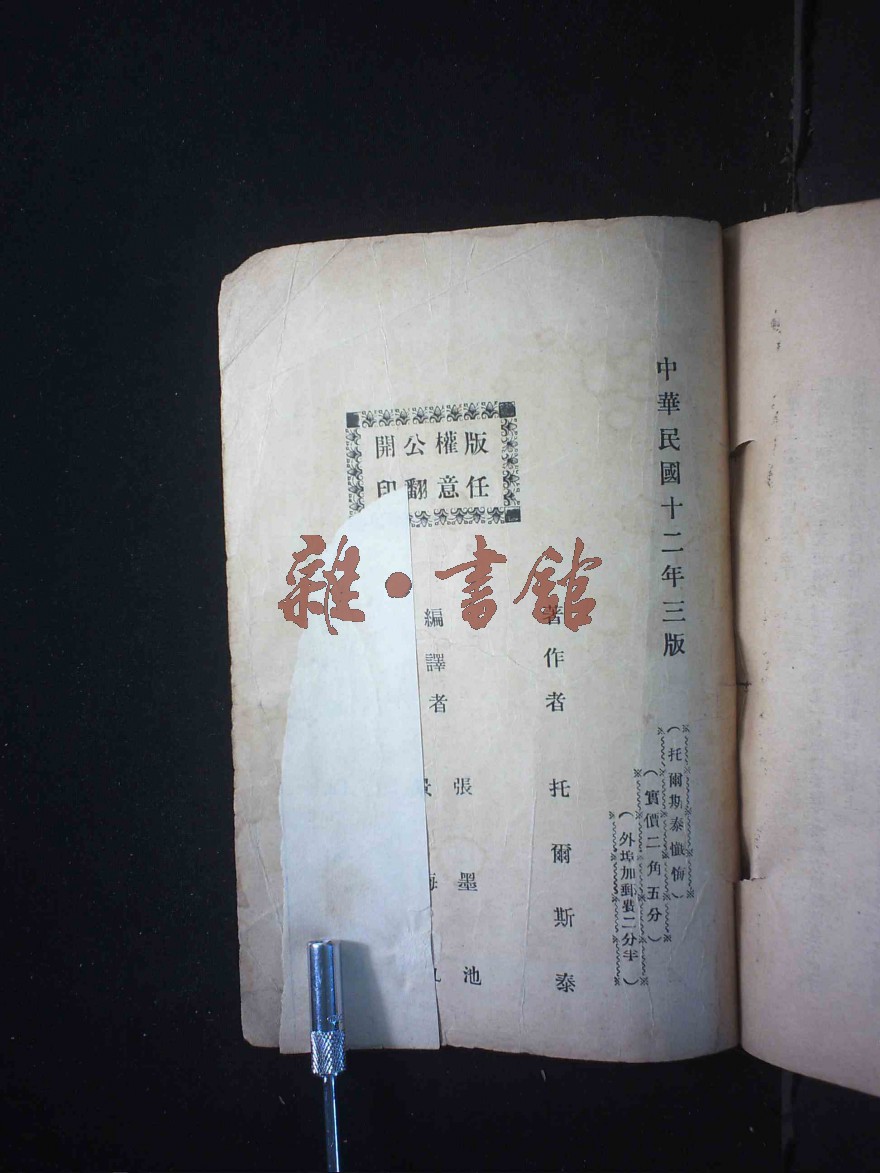 中華民國十二年三版
(托爾斯泰懺悔)
(實價二角五分)
(外埠加郵費二分半)
著作者 托爾斯泰
編譯者 張墨池
版權公開
任意翻印
雜·書館